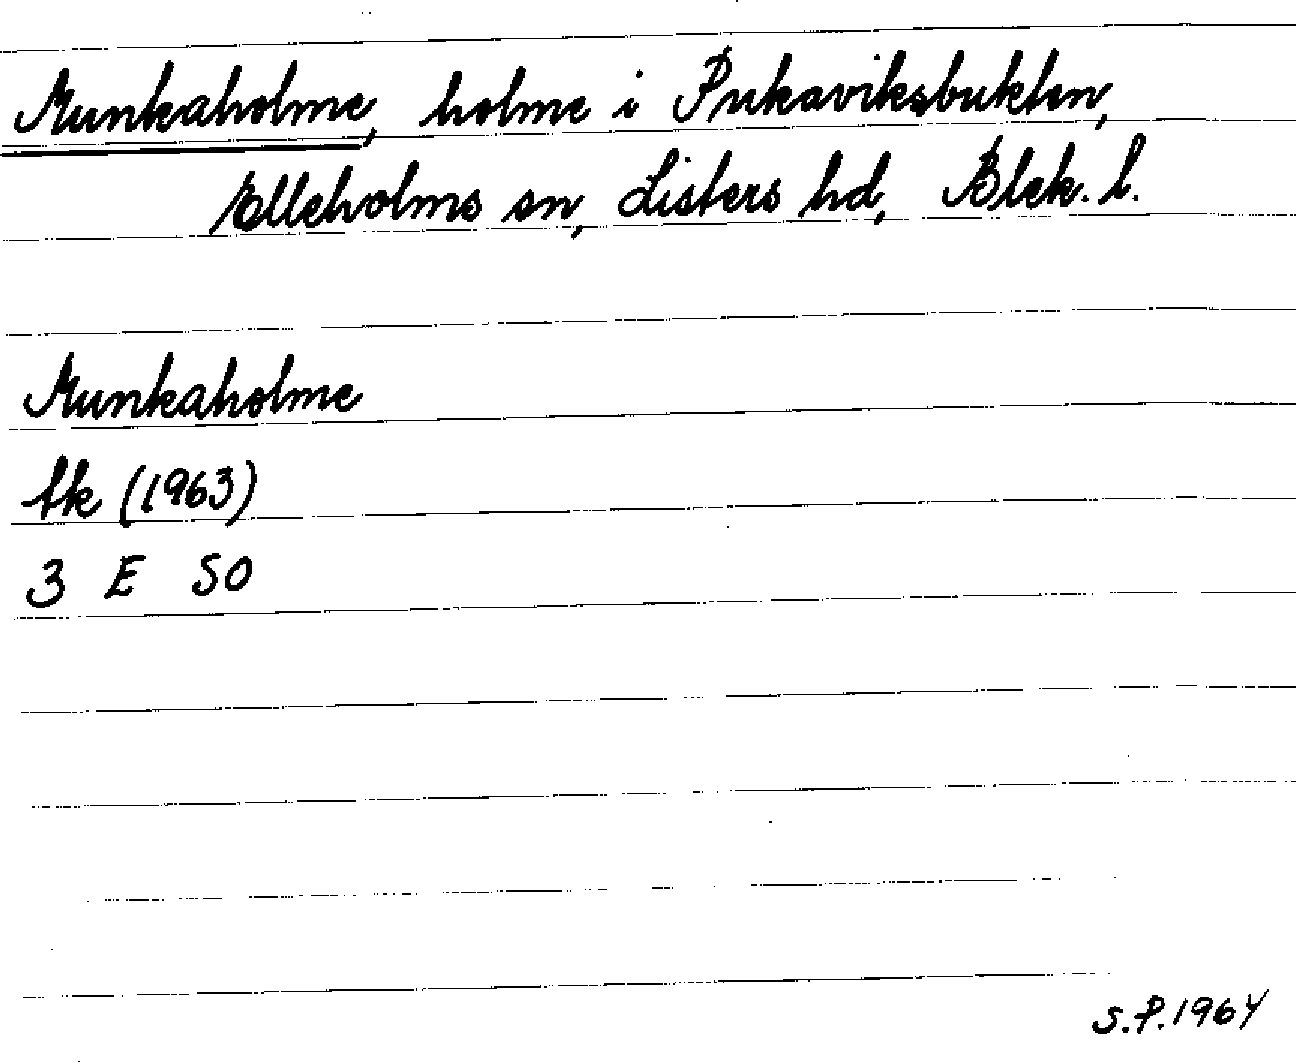 Munkaholme, holme i Pukaviksbukten,
Elleholms sn, Listers hd, Blek. l.
Munkaholme
tk (1963)
3 E SO
S.P. 1964